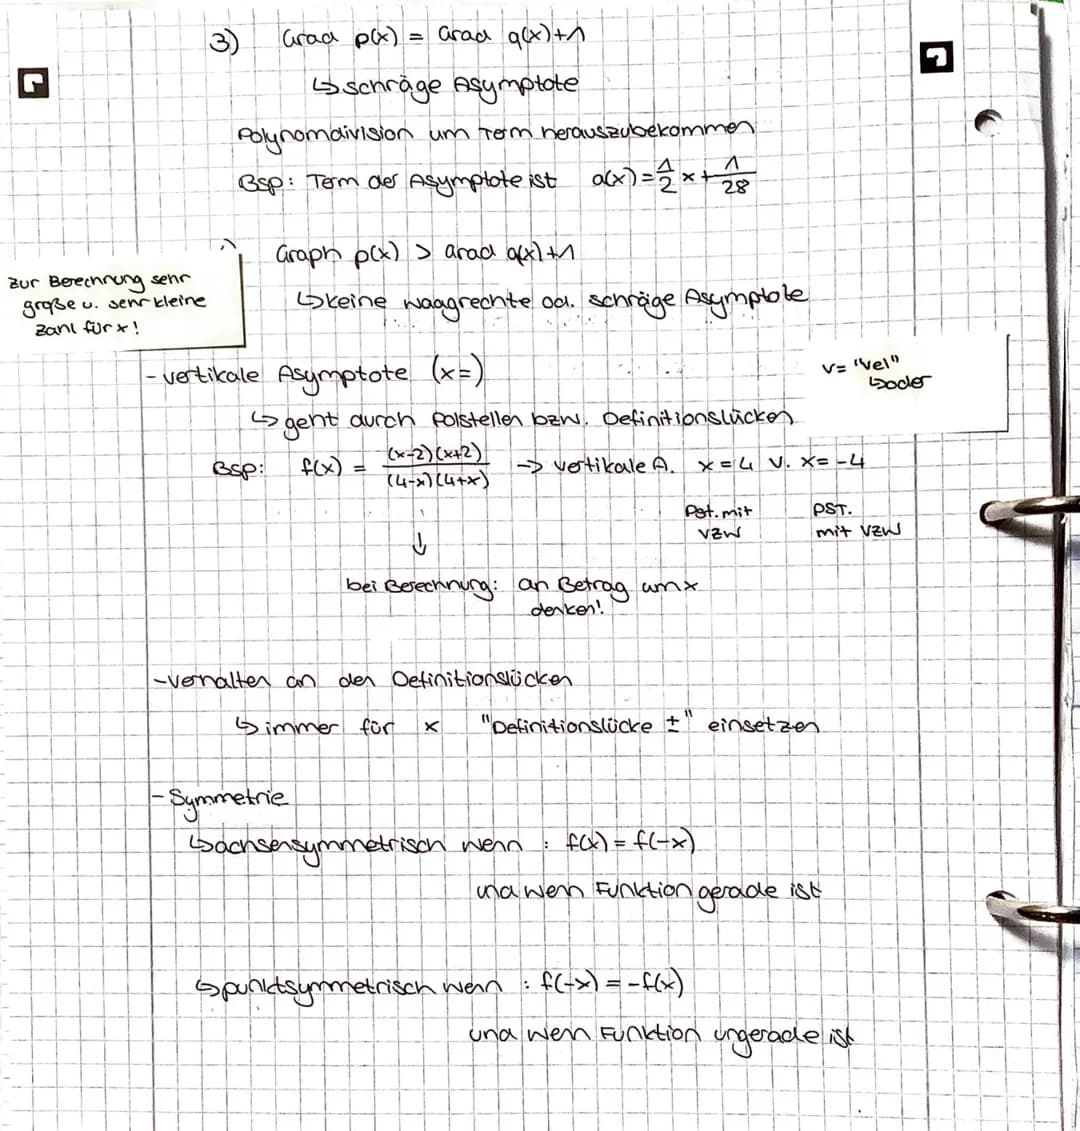 3) Grad p(x) = Grad q(x)+1
↳ schräge Asymptote
Polynomdivision um Term herauszubekommen
Bsp: Term der Asymptote ist a(x) = 1/2 x + 1/28
Graph p(x) > Grad q(x)+1
↳ keine waagrechte od. schräge Asymptote
Zur Berechnung sehr
große u. sehr kleine
Zahl für x!
- vertikale Asymptote (x=)
v = "vel"
↳ oder
↳ geht durch Polstellen bzw. Definitionslücken
Bsp: f(x) = (x-2)(x+2) / (4-x)(4+x) → vertikale A. x = 4 v. x = -4
Pst. mit VZW
PST. mit VZW
↓
bei Berechnung: an Betrag um x
denken!
- Verhalten an den Definitionslücken
↳ immer für x "Definitionslücke ±" einsetzen
- Symmetrie
↳ achsensymmetrisch wenn : f(x) = f(-x)
und wenn Funktion gerade ist
↳ punktsymmetrisch wenn : f(-x) = -f(x)
und wenn Funktion ungerade ist